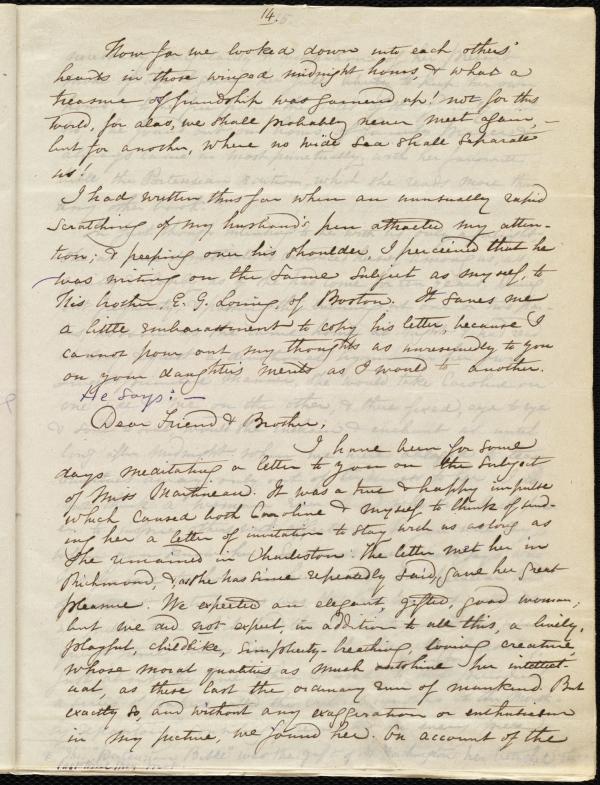 14.
How far we looked down into each others'
hearts in those winged midnight hours, & what a
treasure of friendship was garnered up! not for this
world, for alas, we shall probably never meet again, –
but for another, where no wide sea shall separate
us!
I had written thus far when an unusually rapid
scratching of my husband's pen attracted my atten-
tion; & peeping over his shoulder, I perceived that he
was writing on the same subject as myself, to
his brother, E. G. Loring, of Boston. It saves me
a little embarassment to copy his letter, because I
cannot pour out my thoughts as unreservedly to you
on your daughter's merits, as I would to another.
He says: –
Dear Friend & Brother,
I have been for some
days meditating a letter to you on the subject
of Miss Martineau. It was a true & happy impulse
which caused both Caroline & myself to think of send-
ing her a letter of invitation to stay with us as long as
she remained in Charleston. The letter met her in
Richmond, & as she has since repeatedly said, gave her great
pleasure. We expected an elegant, gifted, good woman;
but we did not expect, in addition to all this, a lively,
playful, childlike, simplicity-breathing, loving creature,
whose moral qualities as much outshine her intellect-
ual, as these last the ordinary run of mankind. But
exactly so, and without any exaggeration or enthusiasm
in my picture, we found her. On account of the